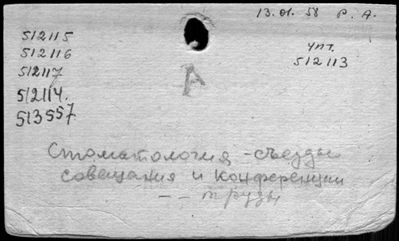 13.01.58 Р. А.
512115
512116
512117
512114.
513557
чит.
512113
А
Стоматология - съезды
совещания и конференции
- - труды